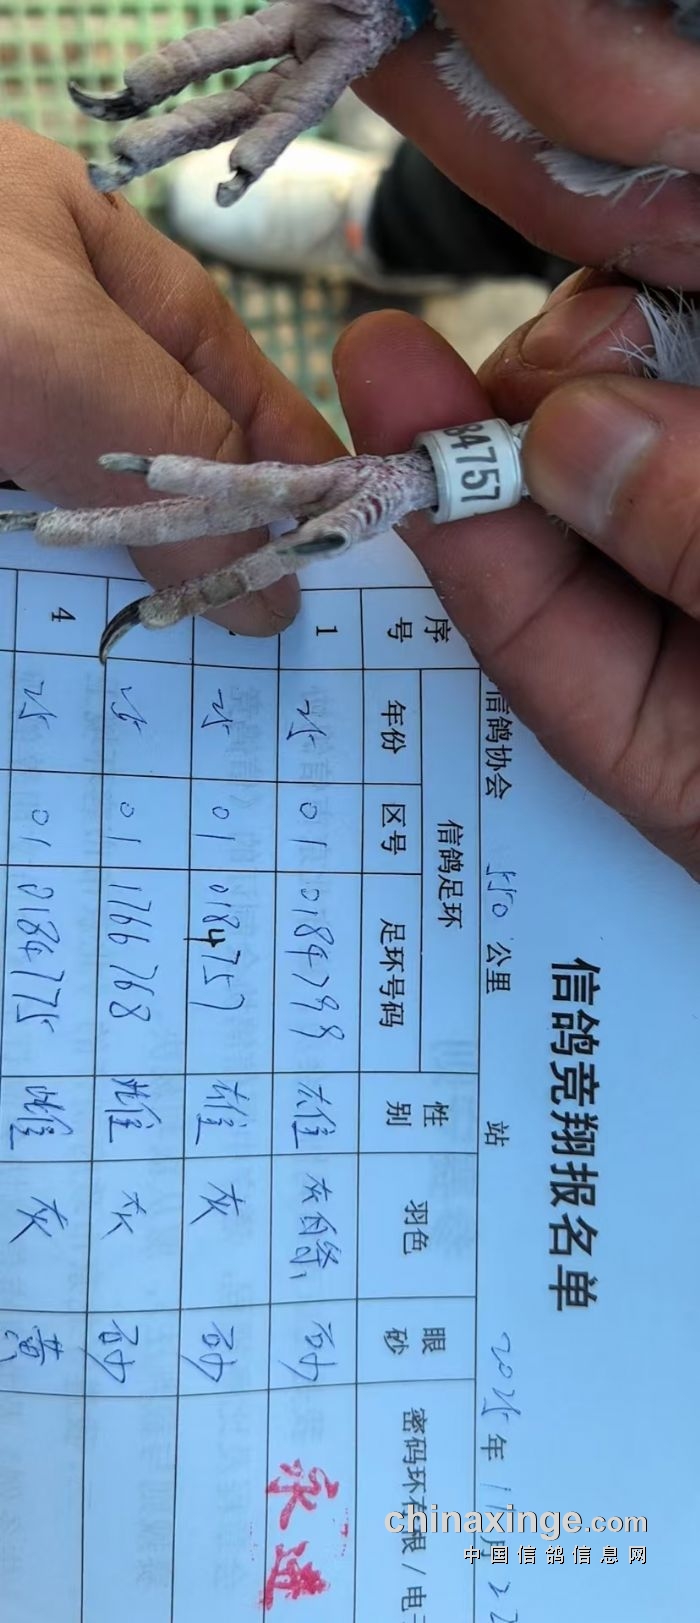 84757
信鸽竞翔报名单
信鸽协会 550 公里 站 2025 年 11 月 22
序号 信鸽足环 性别 羽色 眼砂 密码环有限 / 电
年份 区号 足环号码
1 25 01 0184799 雄 灰白条 砂
25 01 0184757 雄 灰 砂
25 01 1766768 雌 灰 砂
4 25 01 0184775 雌 灰 黄
chinaxinge.com
中国信鸽信息网